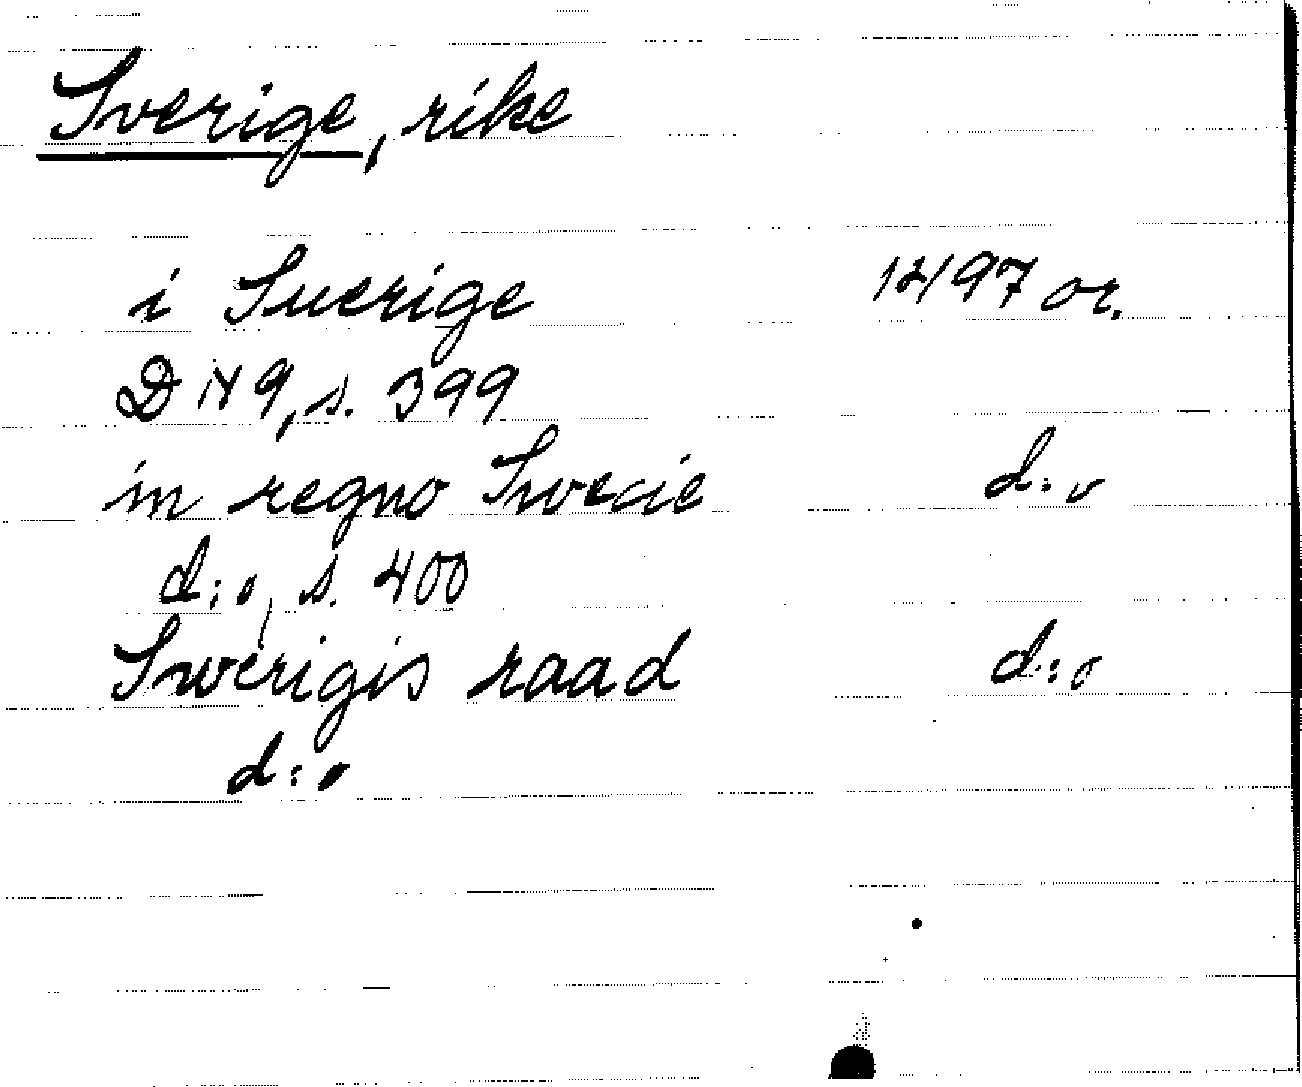 Sverige, rike
i Suerige 1497 or.
DN 9, s. 399
in regno Swecie d:o
d:o, s. 400
Swerigis raad d:o
d:o